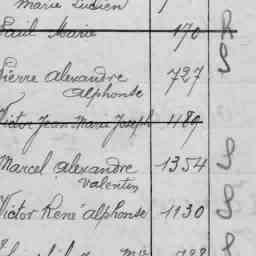 Marie Lucien
Paul Marie 170 R
Pierre Alexandre 727 S
Alphonse
Victor Jean Marie Joseph 1189
Marcel Alexandre 1354 S
Valentin
Victor René Alphonse 1130 S